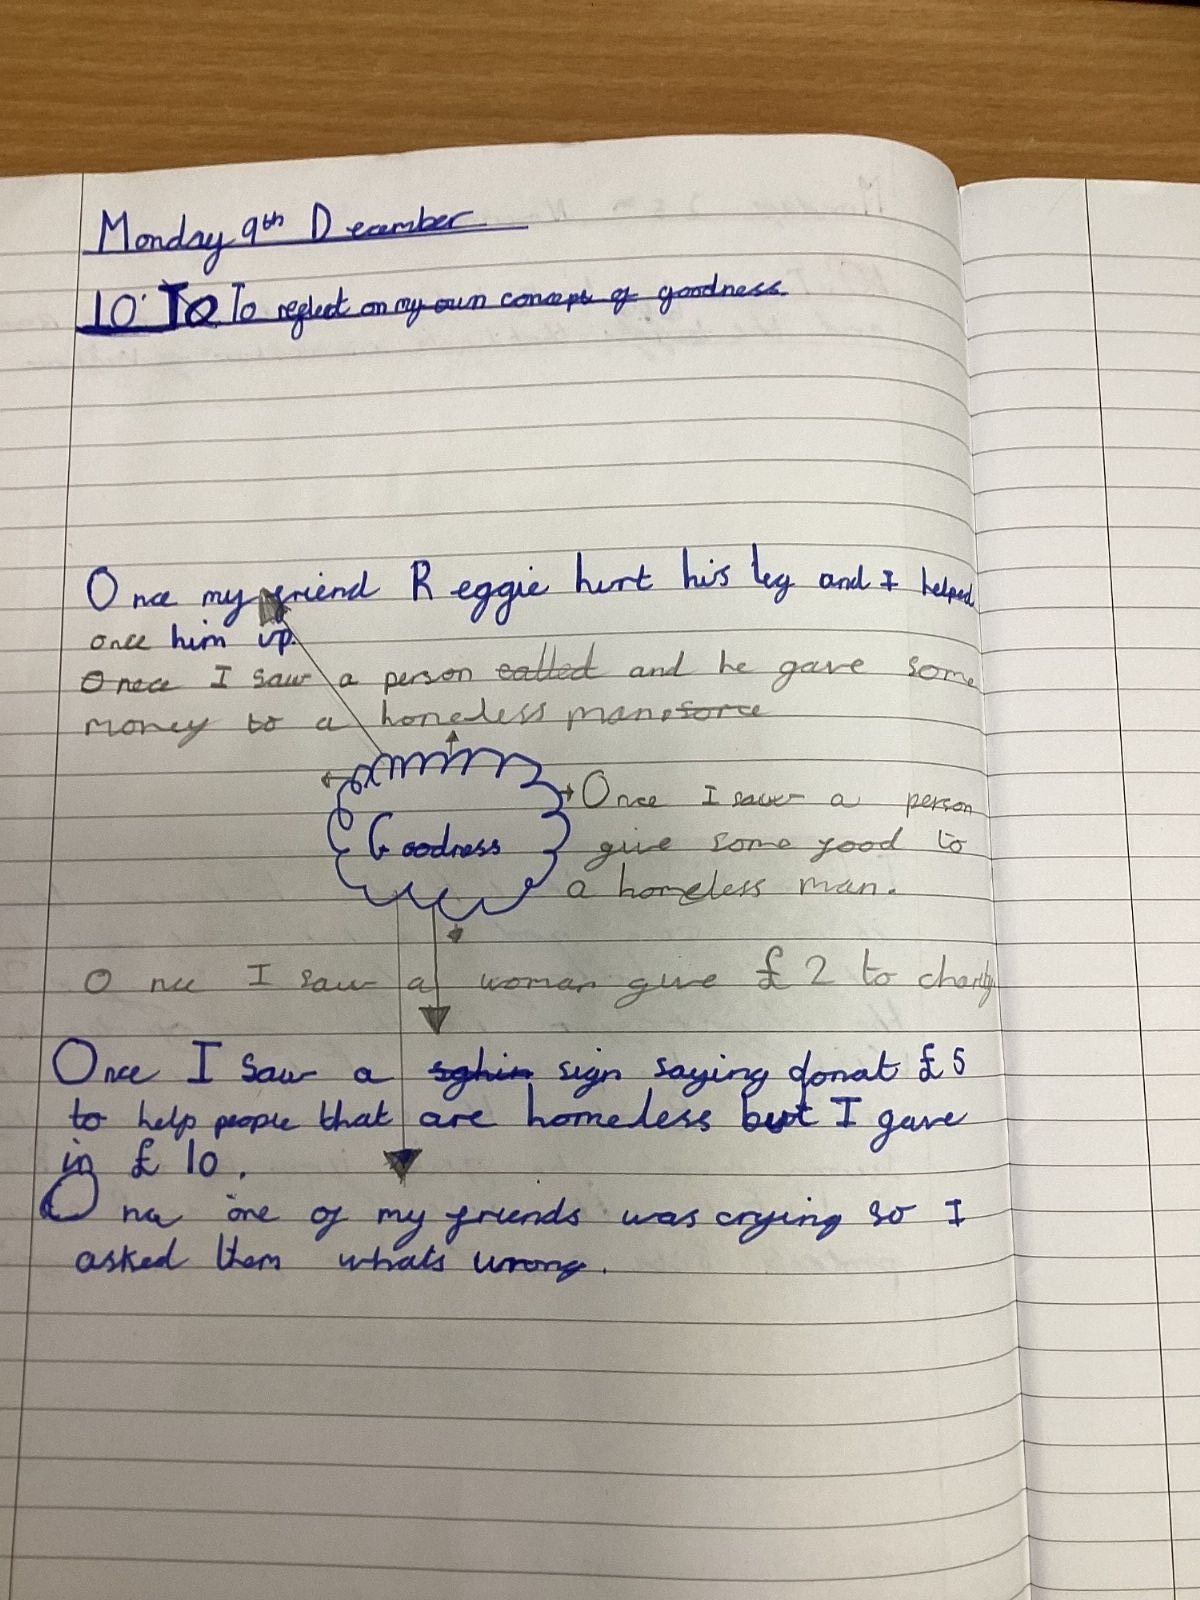 Monday 9th December
LO: To To reflect on my own concept of goodness.
Once my friend Reggie hurt his leg and I helped
once him up.
Onece I saw a person called and he gave some
money to a homeless man. force
Goodness
Once I saw a person
give some food to
a homeless man.
Once I saw a woman give £2 to charity
Once I saw a sghin sign saying donat £5
to help people that are homeless but I gave
in £10.
Once one of my friends was crying so I
asked them whats wrong.